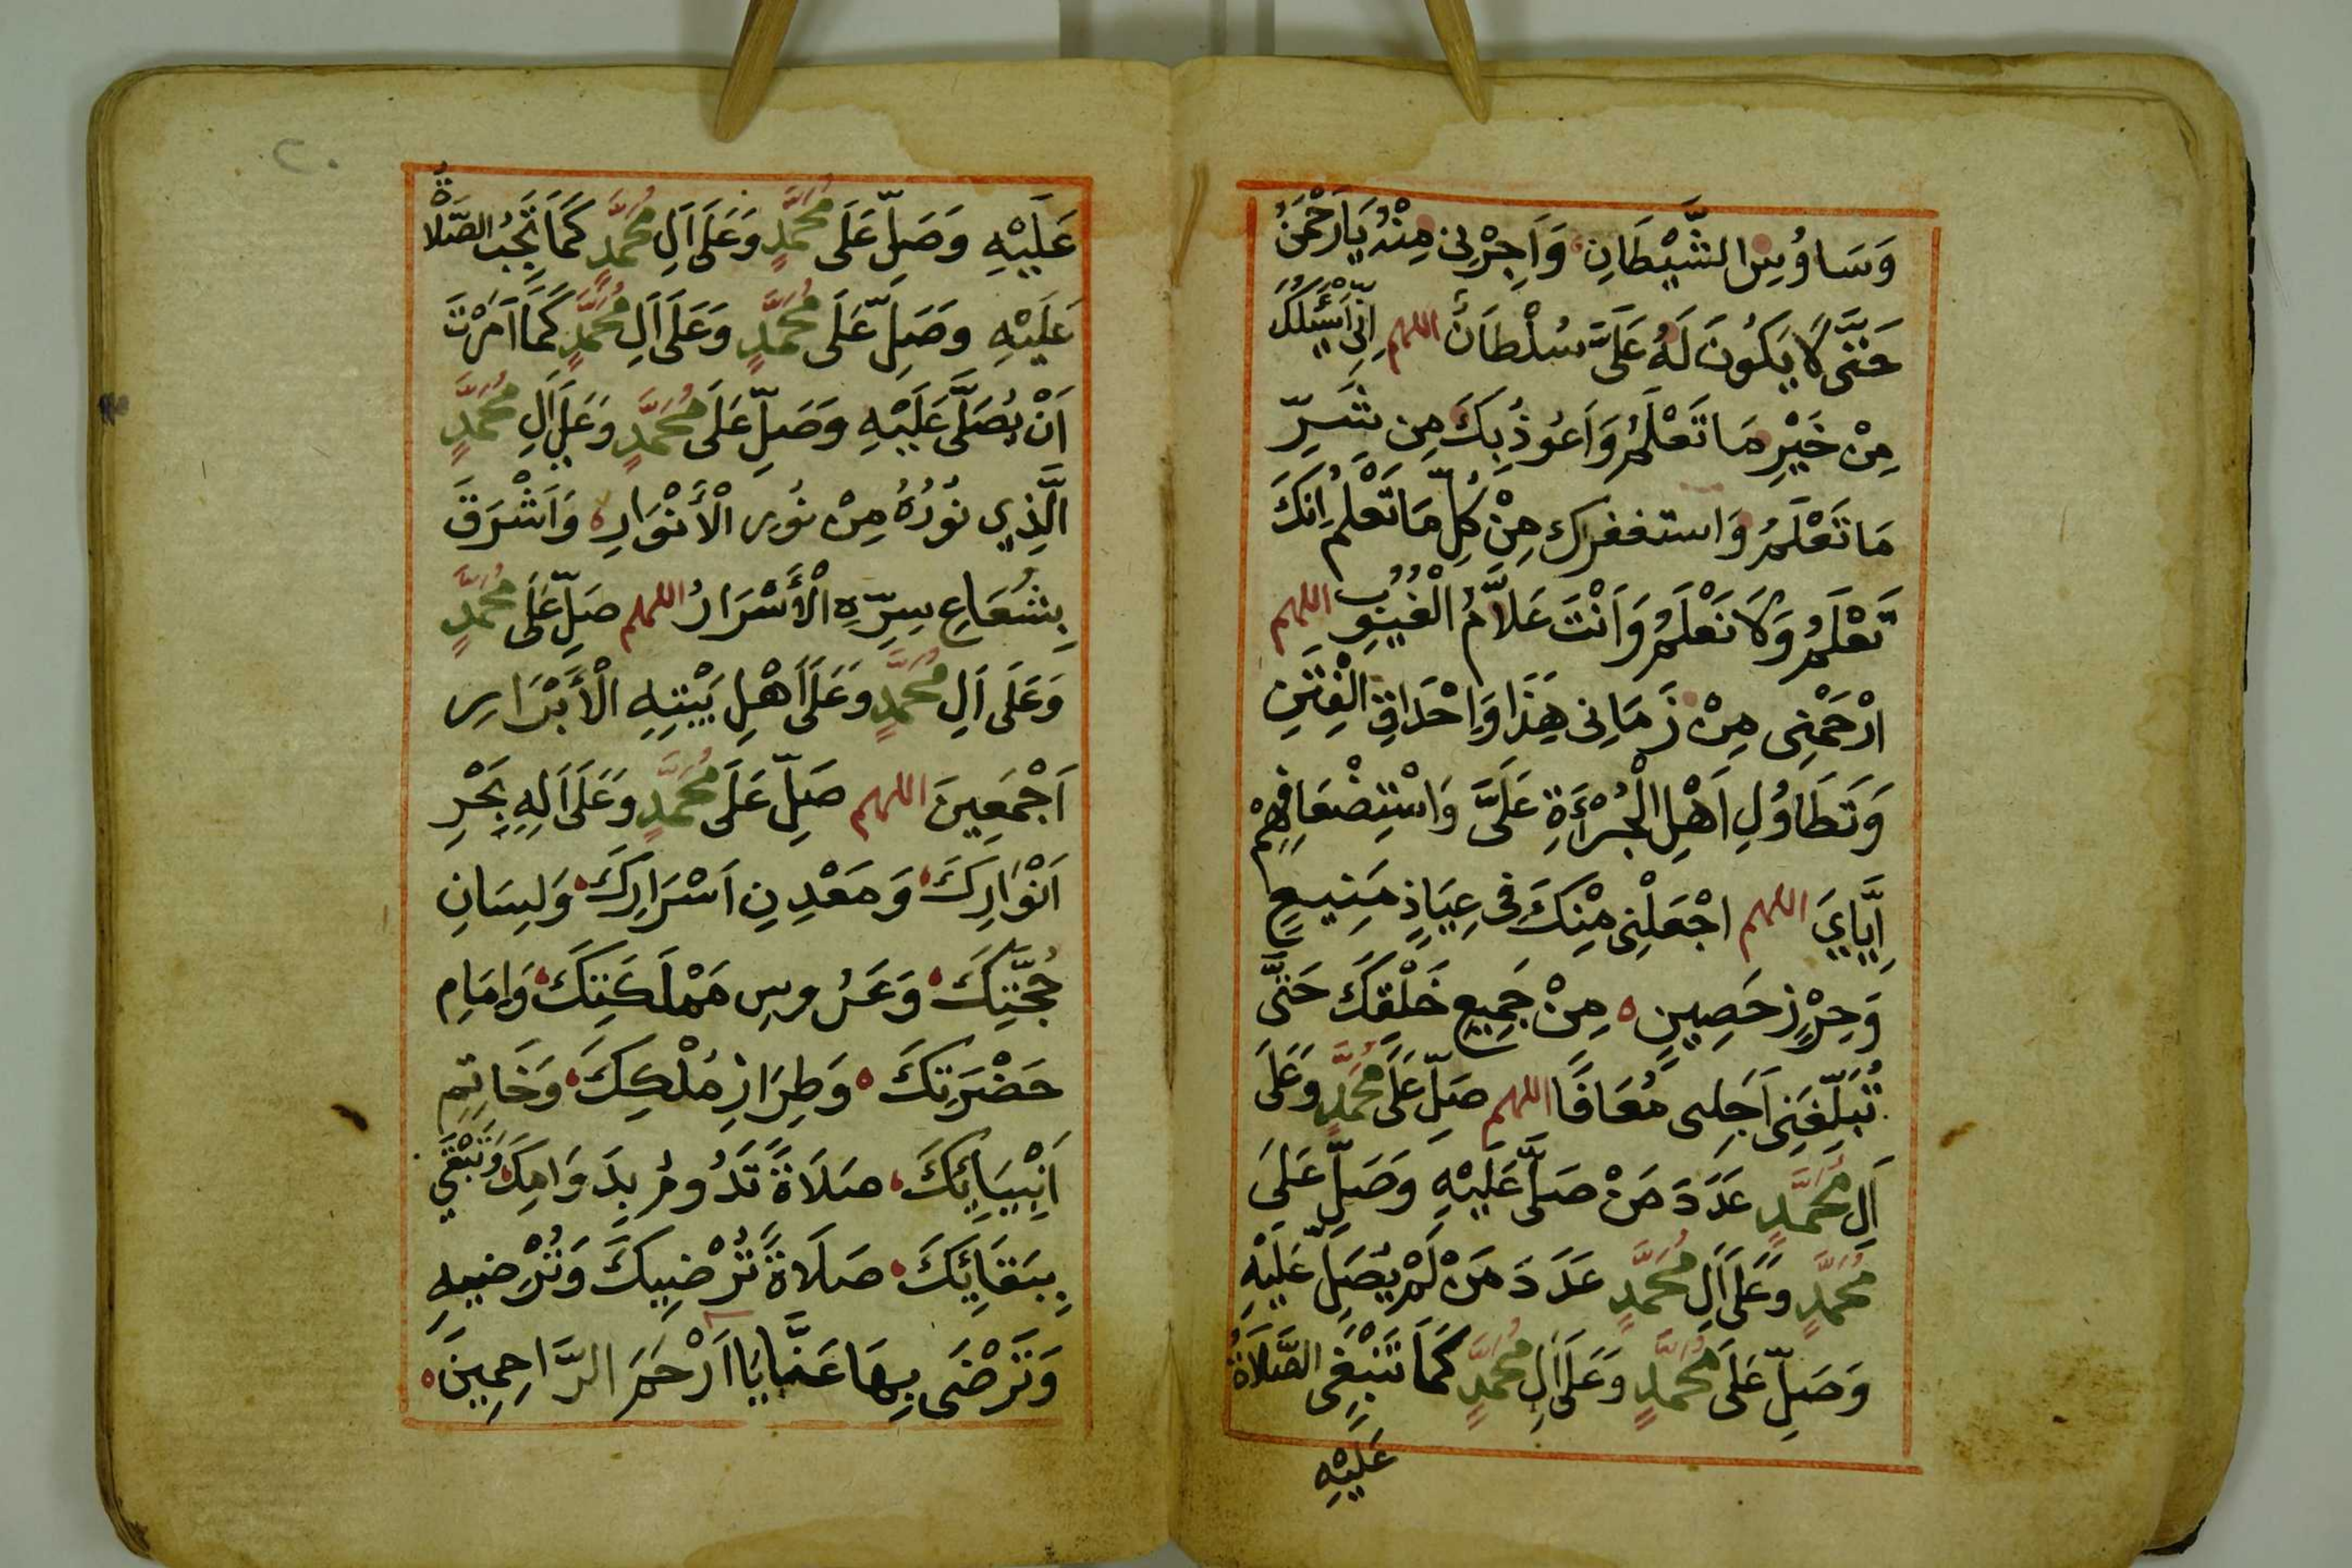 وَسَاوُسِ الشَّيْطَانِ وَاَجِرْنِى مِنْهُ يَارَحْمَنُ
حَتَّى لَا يَكُونَ لَهُ عَلَىَّ سُلْطَانٌ اللهم اِنِّى اَسْئَلُكَ
مِنْ خَيْرِ مَا تَعْلَمُ وَاَعُوذُ بِكَ مِن شَرِّ
مَا تَعْلَمُ وَاستغفرك مِنْ كِلِّ مَا تَعْلَمُ اِنَّكَ
تَعْلَمُ وَلَا نَعْلَمُ وَاَنْتَ عَلَّامُ الْغُيُوبِ اللهم
ارْحَمْنِى مِنْ زَمَانِى هَذَا وَاِحْدَاقِ الْفِتَنِ
وَتَطَاوُلِ اَهْلِ الْجُرْءَةِ عَلَىَّ وَاسْتِضْعَافِهِمْ
اِيَّايَ اللهم اجْعَلْنِى مِنْكَ فِى عِيَاذٍ مَنِيعٍ
وَحِرْزٍ حَصِينٍ مِنْ جَمِيعِ خَلْقِكَ حَتَّى
تُبَلِّغَنِى اَجَلِى مُعَافًا اللهم صَلِّ عَلَى مُحَمَّدٍ وَعَلَى
اَلِ مُحَمَّدٍ عَدَدَ مَنْ صَلَّى عَلَيْهِ وَصَلِّ عَلَى
مُحَمَّدٍ وَعَلَى اَلِ مُحَمَّدٍ عَدَدَ مَنْ لَمْ يُصَلِّ عَلَيْهِ
وَصَلِّ عَلَى مُحَمَّدٍ وَعَلَى اَلِ مُحَمَّدٍ كَمَا تَنْبَغِى الصَّلَاةُ
عَلَيْهِ
٢٠
عَلَيْهِ وَصَلِّ عَلَى مُحَمَّدٍ وَعَلَى اَلِ مُحَمَّدٍ كَمَا تَجِبُ الصَّلَاةُ
عَلَيْهِ وَصَلِّ عَلَى مُحَمَّدٍ وَعَلَى اَلِ مُحَمَّدٍ كَمَا اَمَرْتَ
اَنْ يُصَلَّى عَلَيْهِ وَصَلِّ عَلَى مُحَمَّدٍ وَعَلَى اَلِ مُحَمَّدٍ
الَّذِي نُوْرُهُ مِنْ نُورِ الْأَنْوَارِ وَاَشْرَقَ
بِشُعَاعِ سِرِّهِ الْأَسْرَارُ اللهم صَلِّ عَلَى مُحَمَّدٍ
وَعَلَى اَلِ مُحَمَّدٍ وَعَلَى اَهْلِ بَيْتِهِ الْأَبْرَارِ
اَجْمَعِينَ اللهم صَلِّ عَلَى مُحَمَّدٍ وَعَلَى اَلِهِ بَحْرِ
اَنْوَارِكَ وَمَعْدِنِ اَسْرَارِكَ وَلِسَانِ
حُجَّتِكَ وَعَرُوسِ مَمْلَكَتِكَ وَاِمَامِ
حَضْرَتِكَ وَطِرَازِ مُلْكِكَ وَخَاتِمِ
اَنْبِيَائِكَ صَلَاةً تَدُومُ بِدَوَامِكَ وَتَبْقَي
بِبَقَائِكَ صَلَاةً تُرْضِيكَ وَتُرْضِيهِ
وَتَرْضَى بِهَا عَنَّا يَا اَرْحَمَ الرَّاحِمِينَ